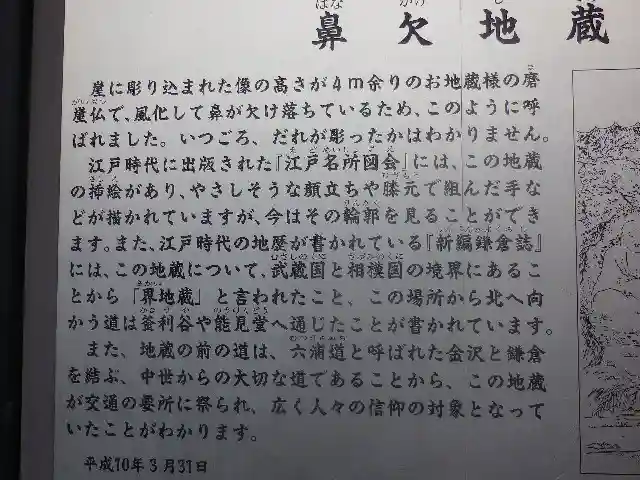 鼻欠地蔵
崖に彫り込まれた像の高さが4m余りのお地蔵様の磨
崖仏で、風化して鼻が欠け落ちているため、このように呼
ばれました。いつごろ、だれが彫ったかはわかりません。
江戸時代に出版された『江戸名所図会』には、この地蔵
の挿絵があり、やさしそうな顔立ちや膝元で組んだ手な
どが描かれていますが、今はその輪郭を見ることができ
ます。また、江戸時代の地歴が書かれている『新編鎌倉誌』
には、この地蔵について、武蔵国と相模国の境界にあるこ
とから「界地蔵」と言われたこと、この場所から北へ向
かう道は釜利谷や能見堂へ通じたことが書かれています。
また、地蔵の前の道は、六浦道と呼ばれた金沢と鎌倉
を結ぶ、中世からの大切な道であることから、この地蔵
が交通の要所に祭られ、広く人々の信仰の対象となって
いたことがわかります。
平成10年3月31日